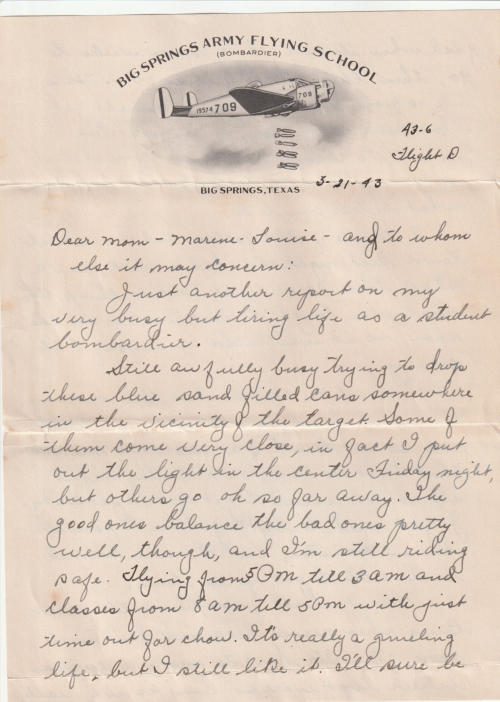 BIG SPRINGS ARMY FLYING SCHOOL
(BOMBARDIER)
19574 709
709
43-6
Flight D
3-21-43
BIG SPRINGS, TEXAS
Dear Mom - Marene - Louise - and to whom
else it may concern:
Just another report on my
very busy but tiring life as a student
bombardier.
Still awfully busy trying to drop
these blue sand filled cans somewhere
in the vicinity of the target. Some of
them come very close, in fact I put
out the light in the center Friday night,
but others go oh so far away. The
good ones balance the bad ones pretty
well, though, and I'm still riding
safe. Flying from 5 PM till 3 AM and
classes from 8 AM till 5 PM with just
time out for chow. It's really a grueling
life, but I still like it. I'll sure be